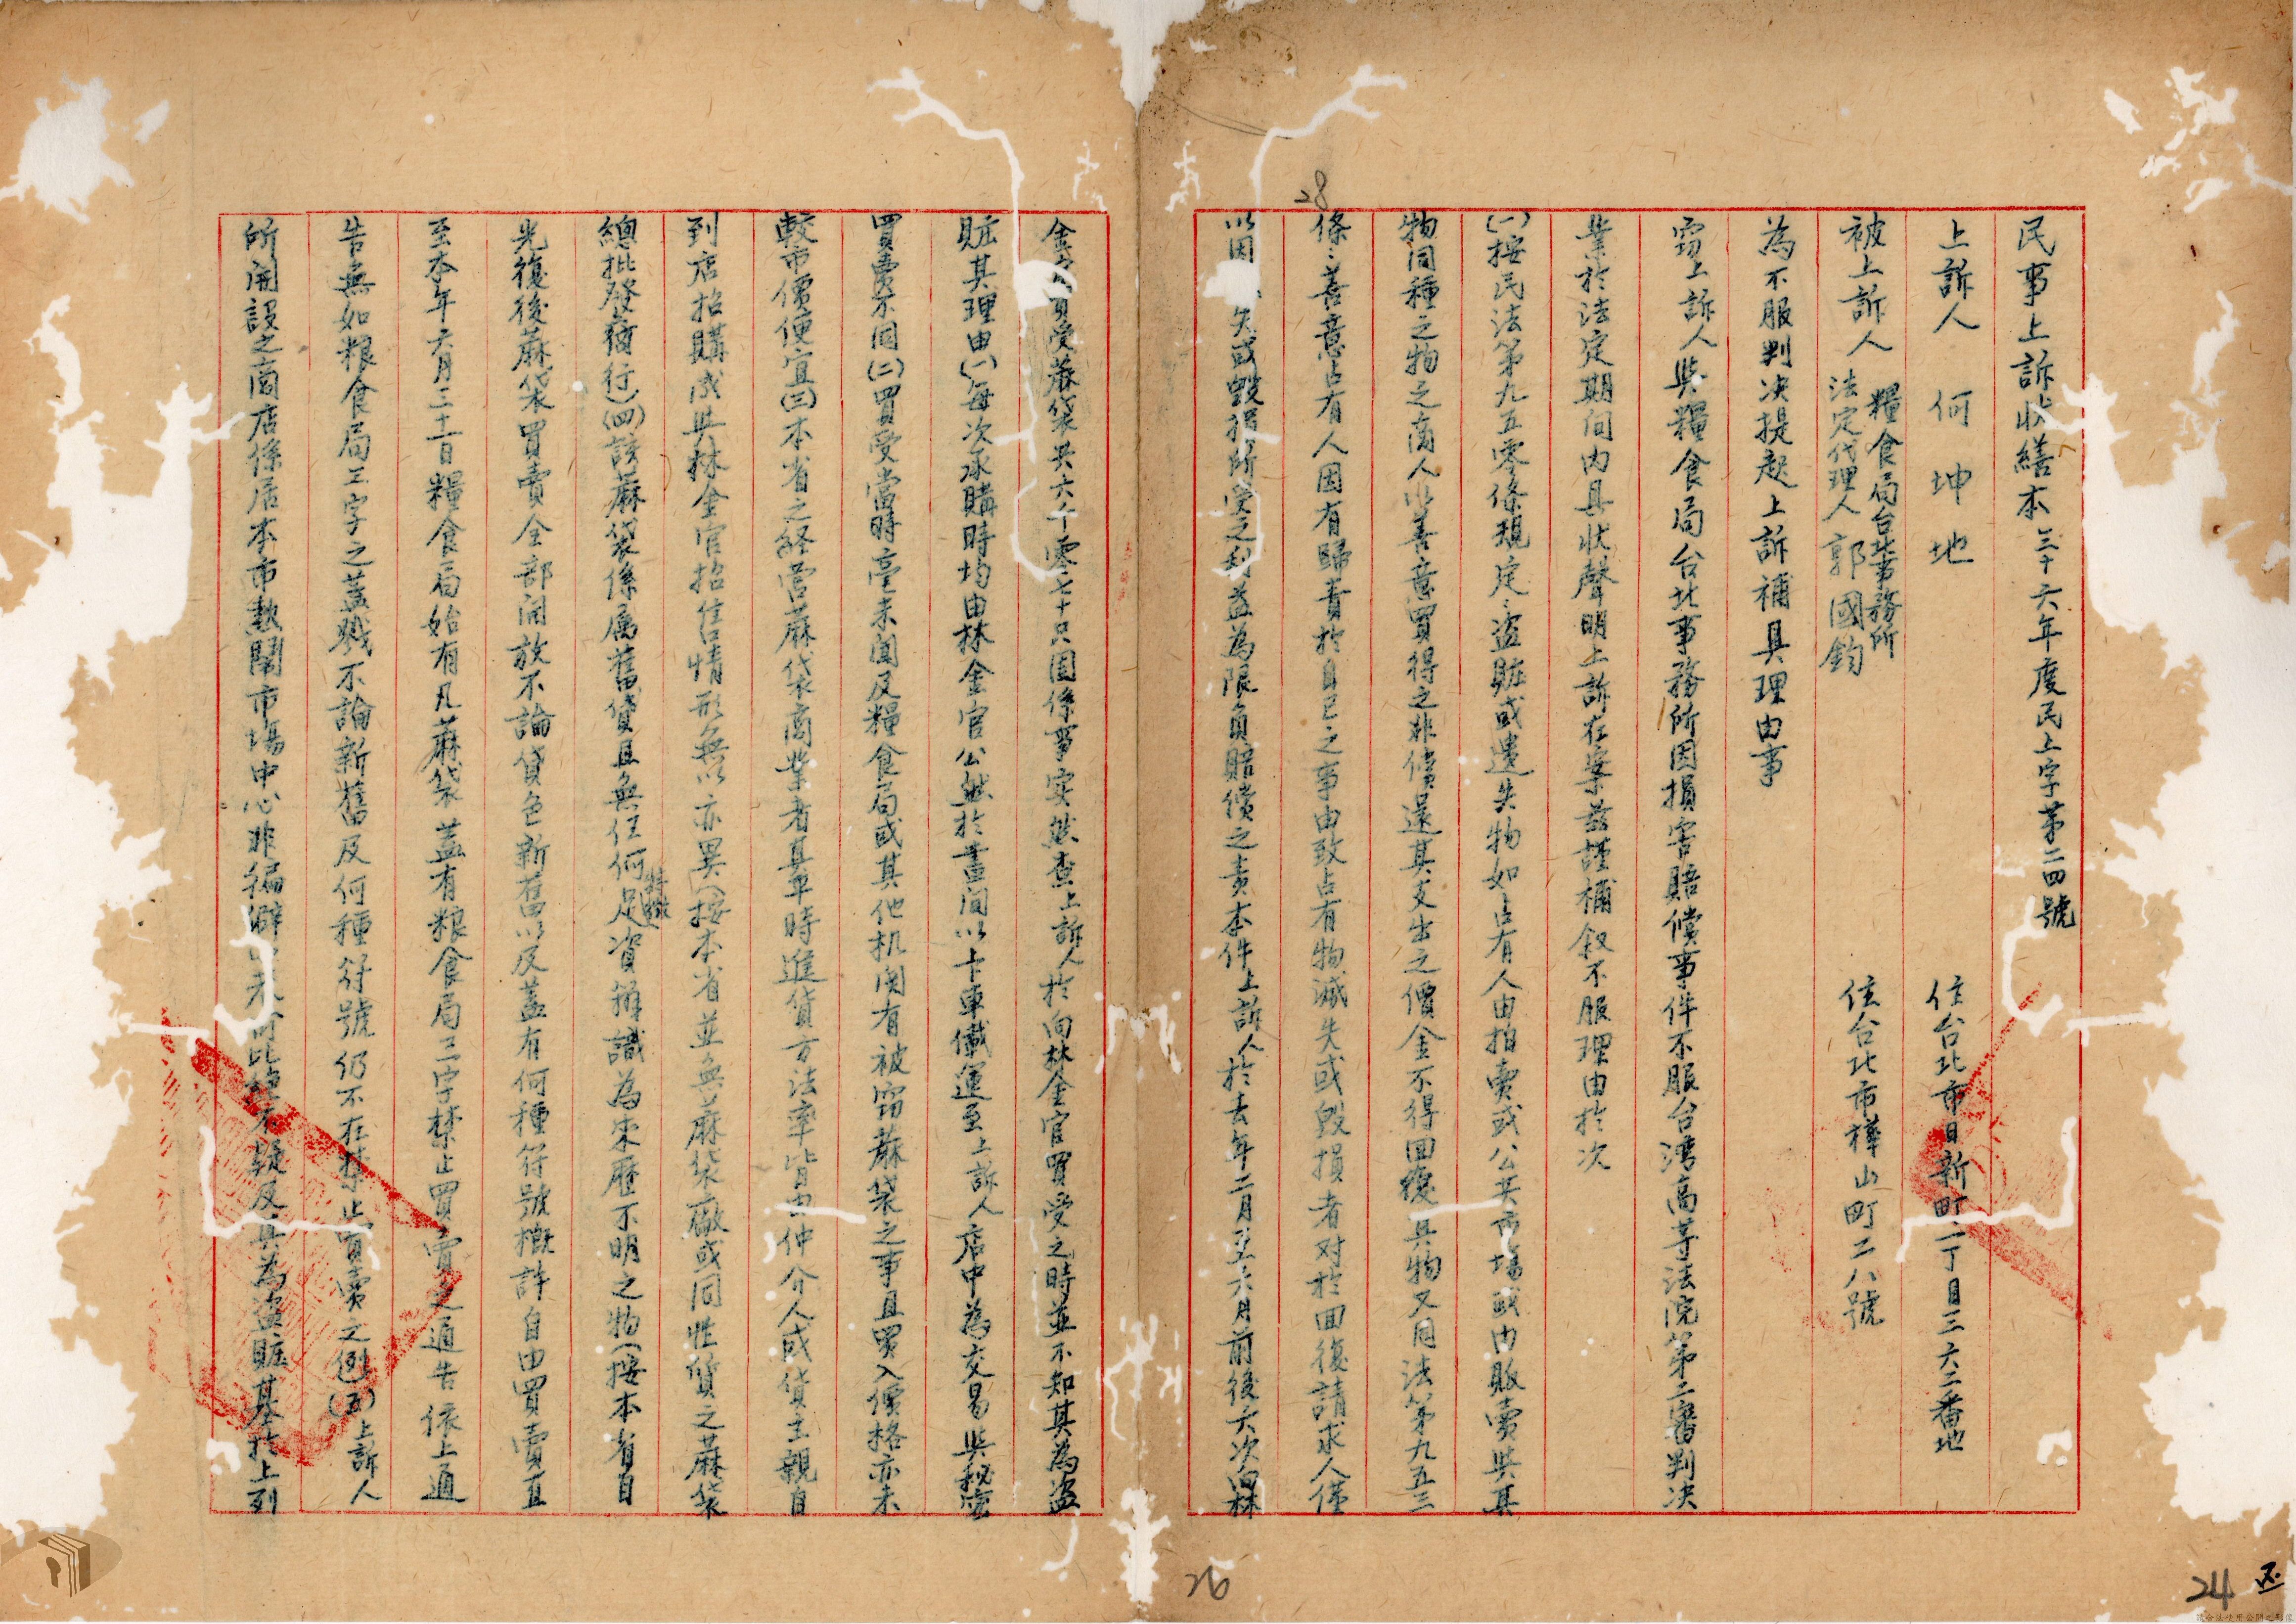 民事上訴狀繕本 三十六年度民上字第二四號
上訴人 何坤地 住台北市日新町二丁目三六二番地
被上訴人 糧食局台北事務所 法定代理人 郭國鈞 住台北市樺山町二八號
為不服判決提起上訴補具理由事
竊上訴人與糧食局台北事務所因損害賠償事件不服台灣高等法院第二審判決
業於法定期間內具狀聲明上訴在案茲謹補叙不服理由於次
(一)按民法第九五零條規定：盜贓或遺失物如占有人由拍賣或公共市場或由販賣與其
物同種之物之商人以善意買得之非償還其支出之價金不得回復其物又同法第九五三
條：善意占有人因有歸責於自己之事由致占有物滅失或毀損者对於回復請求人僅
以因 失或毀損所受之利益為限負賠償之責本件上訴人於去年二月至六月前後六次向林
金 買受蔴袋共六千零七十只固係事实然查上訴人於向林金官買受之時並不知其為盜
贓其理由(一)每次承購時均由林金官公然於晝間以卡車儎運至上訴人店中為交易與秘密
買賣不同(二)買受當時毫未聞及糧食局或其他机関有被窃蔴袋之事且買入價格亦未
較市價便宜(三)本省之経営蔴袋商業者辜時進貨方法率皆由仲介人或貨主親自
到店招購或與林金官招售情形無以亦異(按本省並無蔴袋廠或同性質之蔴袋
總批發商行)(四)該蔴袋係属舊貨且無任何特徵足資辨識為來歷不明之物(按本省自
光復後蔴袋買賣全部開放不論貨色新舊以及蓋有何種符號概許自由買賣直
至本年六月三十日糧食局始有凡蔴袋蓋有粮食局三字禁止買賣之通告依上通
告無如粮食局三字之蓋戳不論新舊及何種符號仍不在禁止買賣之例)(五)上訴人
所開設之商店係居本市熱鬧市場中心非偏僻 可比 不疑及其為盜贓基於上列
28
26
24